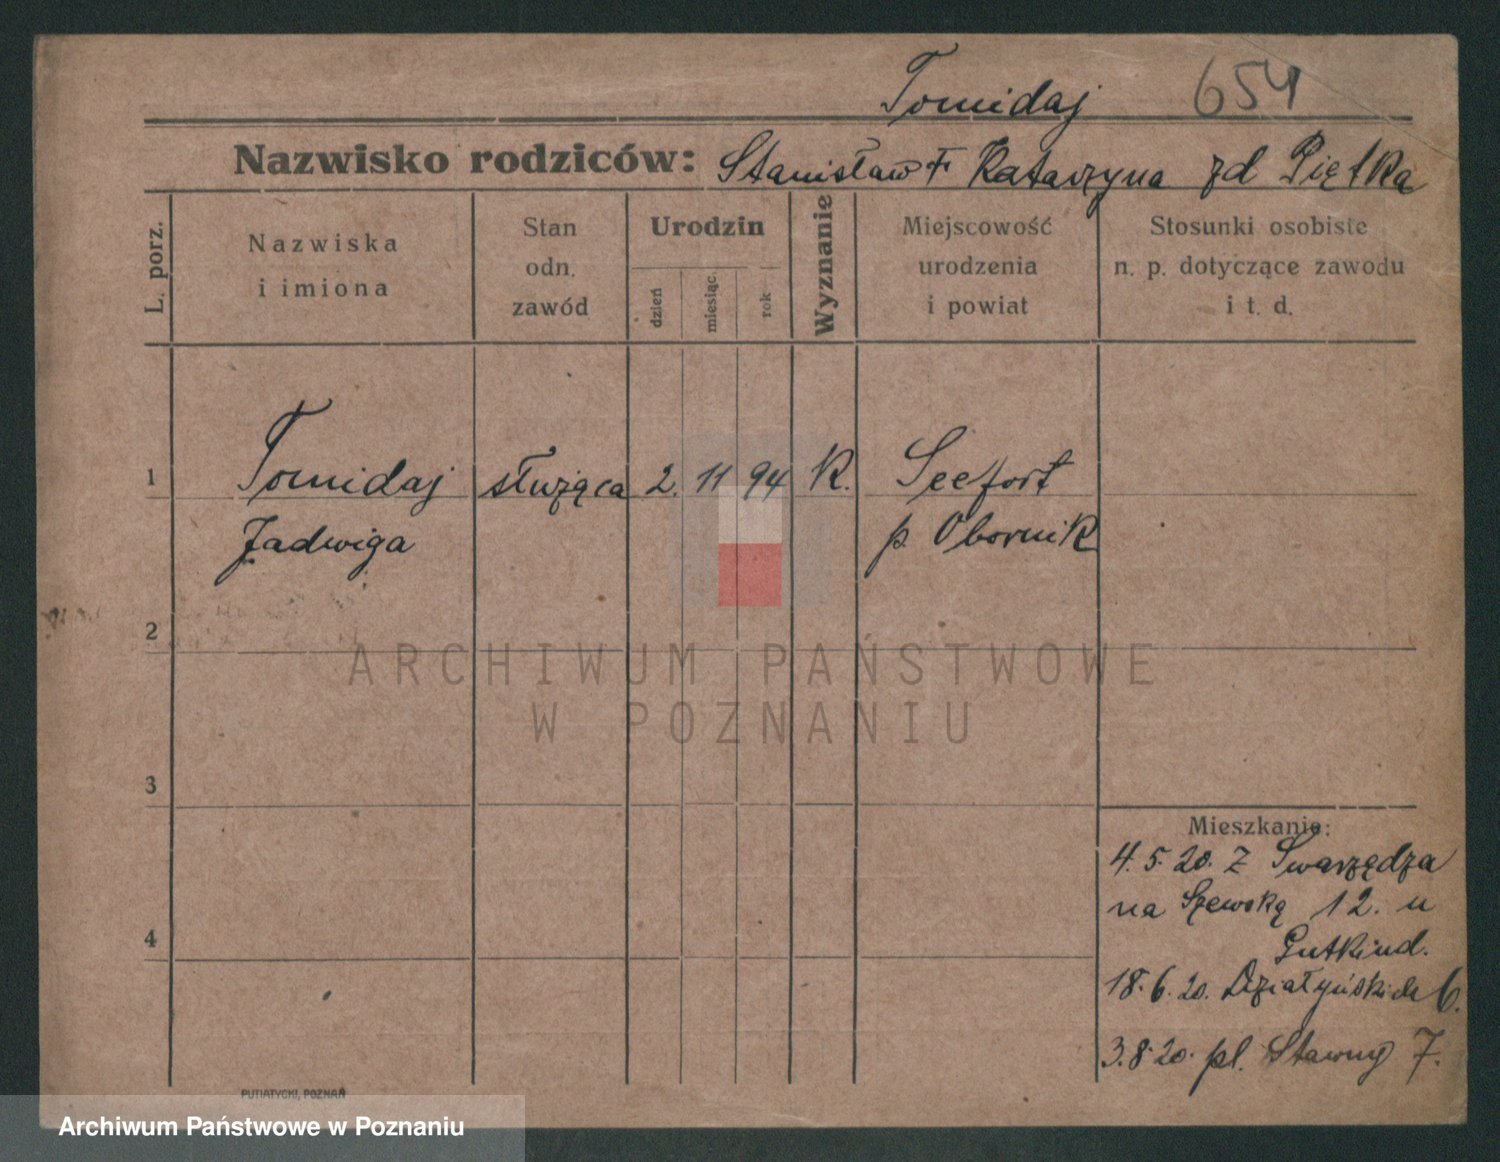 Tomidaj 654
Nazwisko rodziców: Stanisław + Katarzyna zd Piętka
L. porz.
Nazwiska
i imiona
Stan
odn.
zawód
Urodzin
dzień
miesiąc
rok
Wyznanie
Miejscowość
urodzenia
i powiat
Stosunki osobiste
n. p. dotyczące zawodu
i t. d.
1 Tomidaj służąca 2. 11 94 K. Seefort
Jadwiga p. Obornik
2
3
4
Mieszkanie:
4.5.20. z Swarzędza
na Szewską 12. u
Gutkind.
18.6.20. Działyńskich 6.
3.8.20. pl. Stawny 7.
PUTIATYCKI, POZNAŃ
ARCHIWUM PAŃSTWOWE
W POZNANIU
Archiwum Państwowe w Poznaniu